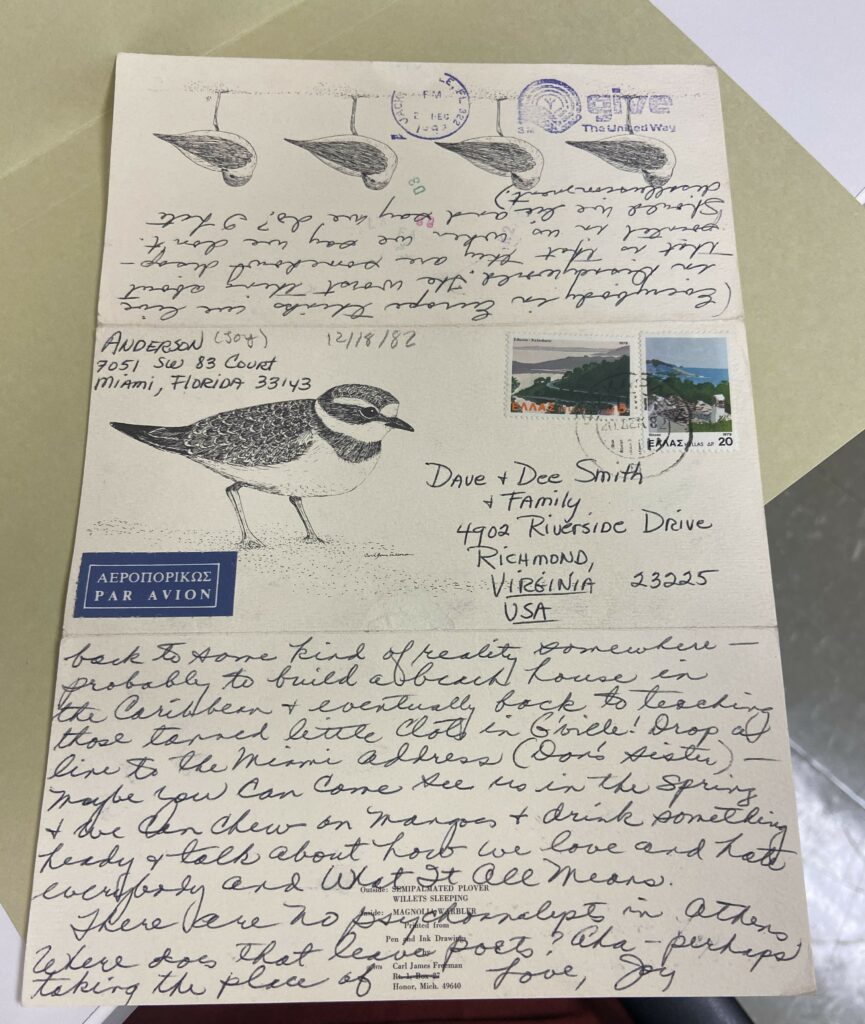 FL 322
PM
give
The United Way
(Everybody in Europe thinks we live
in Disneyworld. The worst thing about
that is that they are somehow disap-
pointed in us when we say we don't.
Should we lie and say we do? I hate
disillusionment.)
ANDERSON (JOY) 12/18/82
7051 SW 83 COURT
MIAMI, FLORIDA 33143
1979
ΕΛΛΑΣ
1979
ΕΛΛΑΣ HELLAS ΔΡ 20
Dave + Dee Smith
+ Family
4902 Riverside Drive
RICHMOND,
VIRGINIA 23225
USA
ΑΕΡΟΠΟΡΙΚΩΣ
PAR AVION
back to some kind of reality somewhere —
probably to build a beach house in
the Caribbean + eventually back to teaching
those tanned little clots in G'ville! Drop a
line to the Miami address (Don's sister) —
maybe you can come see us in the Spring
+ we can chew on mangoes + drink something
heady + talk about how we love and hate
everybody and What It All Means.
There are no psychoanalysts in Athens
Where does that leave poets? Aha – perhaps
taking the place of Love, Joy
Outside: SEMIPALMATED PLOVER
WILLETS SLEEPING
Inside: MAGNOLIA WARBLER
Printed from
Pen and Ink Drawings
by
Carl James Freeman
Rt. 1, Box 27
Honor, Mich. 49640